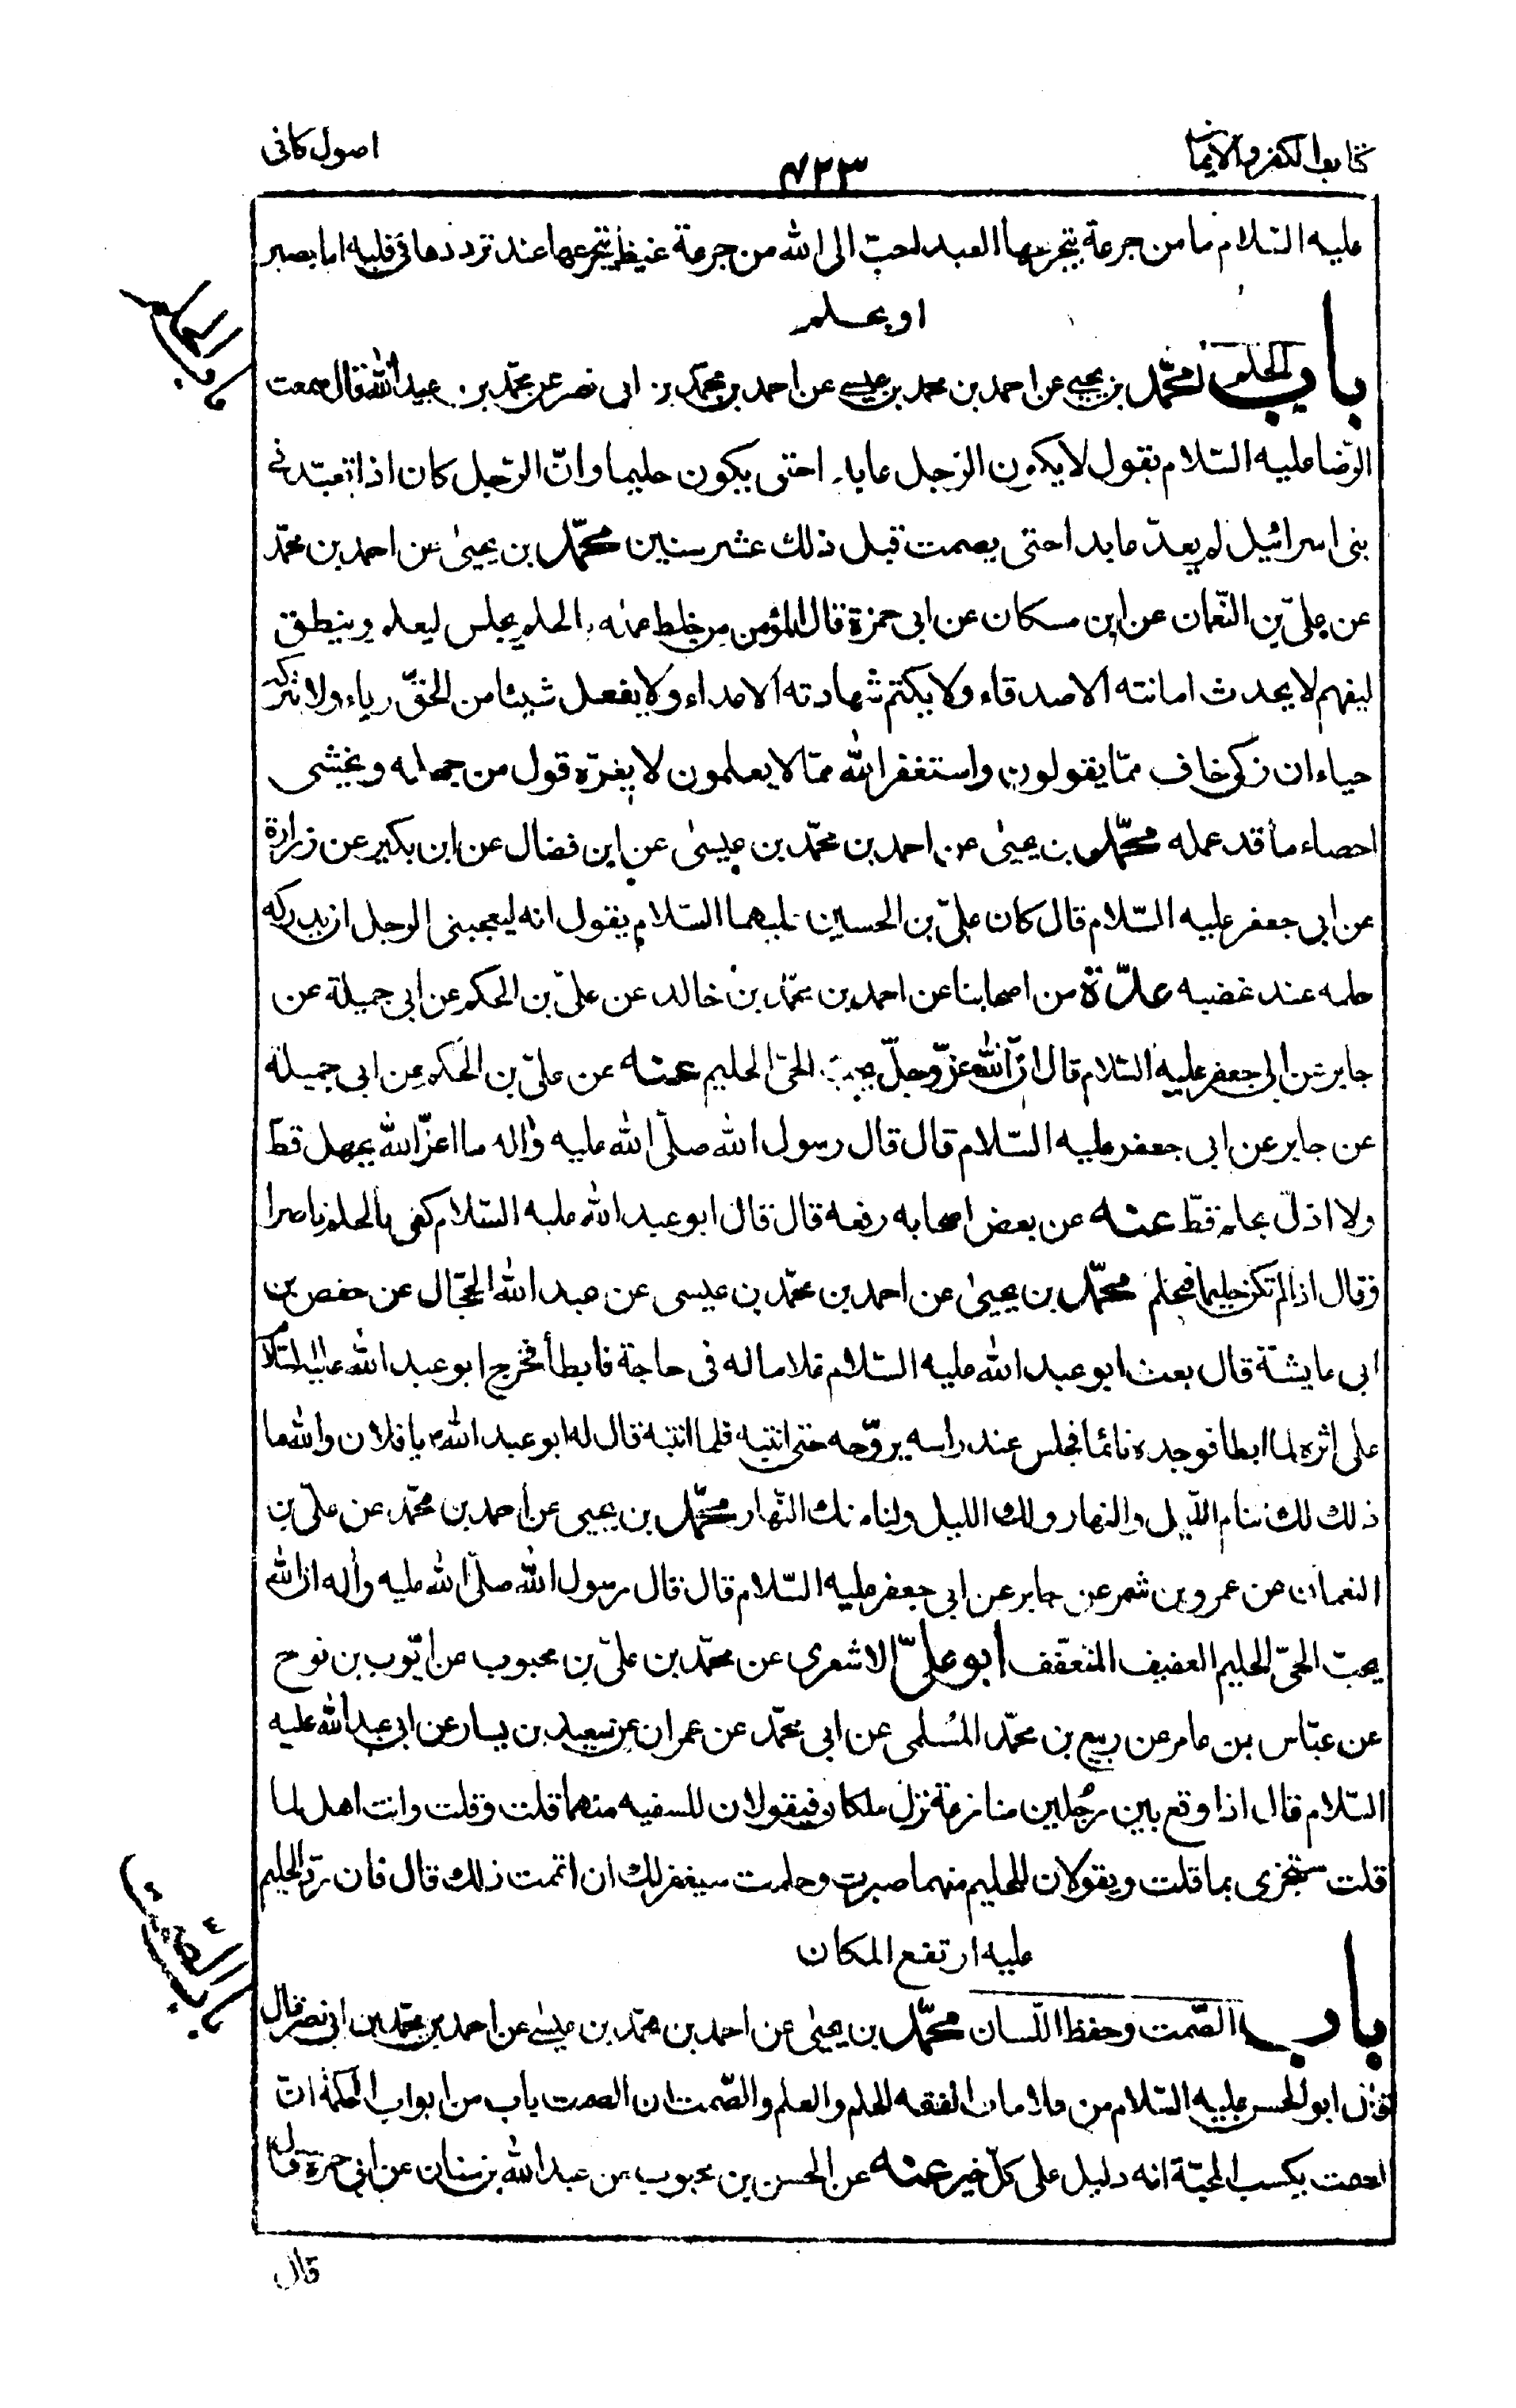 كتاب الكفر والايمان
٤٢٣
اصول كافى
عليه السّلام ما من جرعة يتجرعها العبد احبّ الى الله من جرعة غيظ يتجرعها عند ترددها فى قلبه اما بصبر
او بحلم
باب الحلم
باب الحلم محمّد بن يحيى عن احمد بن محمد بن عيسى عن احمد بن محمّد بن ابى نصر عن محمّد بن عبيد الله قال سمعت
الرّضا عليه السّلام يقول لا يكون الرّجل عابدا حتى يكون حليما وانّ الرّجل كان اذا تعبّد فى
بنى اسرائيل لم يعدّ عابدا حتى يصمت قبل ذلك عشر سنين محمّد بن يحيىٰ عن احمد بن محمّد
عن علىّ بن النّعمان عن ابن مسكان عن ابى حمزة قال المؤمن من خلط عمله بالحلم يجلس ليعلم وينطق
ليفهم لا يحدث امانته الاصدقاء ولا يكتم شهادته الاعداء ولا يفعل شيئا من الحقّ رياء ولا يتركه
حياء ان زكى خاف ممّا يقولون واستغفر الله ممّا لا يعلمون لا يغرّه قول من جهله ويخشى
احصاء ما قد عمله محمّد بن يحيىٰ عن احمد بن محمّد بن عيسىٰ عن ابن فضال عن ابن بكير عن زرارة
عن ابى جعفر عليه السّلام قال كان علىّ بن الحسين عليهما السّلام يقول انه ليعجبنى الرجل ان يدركه
حلمه عند غضبه عدّة من اصحابنا عن احمد بن محمّد بن خالد عن علىّ بن الحكم عن ابى جميلة عن
جابر عن ابى جعفر عليه السّلام قال انّ الله عزّ وجلّ يحبّ الحىّ الحليم عنه عن علىّ بن الحَكم عن ابى جميلة
عن جابر عن ابى جعفر عليه السّلام قال قال رسول الله صلّى الله عليه واٰله ما اعزّ الله بجهل قط
ولا اذلّ بحلم قطّ عنه عن بعض اصحابه رفعه قال قال ابو عبد الله عليه السّلام كفى بالحلم ناصرا
وقال اذا لم تكن حليما فتحلم محمّد بن يحيىٰ عن احمد بن محمّد بن عيسى عن عبد الله الحجّال عن حفص بن
ابى عايشة قال بعث ابو عبد الله عليه السّلام غلاما له فى حاجة فابطأ فخرج ابو عبد الله عليه السّلام
على اثره لما ابطا فوجده نائما فجلس عند راسه يروّحه حتى انتبه فلما انتبه قال له ابو عبد الله ع يا فلان والله ما
ذلك لك تنام اللّيل والنهار ولك الليل ولنا منك النّهار محمّد بن يحيى عن احمد بن محمّد عن علىّ بن
النعمان عن عمرو بن شمر عن جابر عن ابى جعفر عليه السّلام قال قال رسول الله صلّى الله عليه واٰله ان الله
يحبّ الحىّ الحليم العفيف المتعفّف ابو علىّ الاشعرى عن محمّد بن علىّ بن محبوب عن ايّوب بن نوح
عن عبّاس بن عامر عن ربيع بن محمّد المُسلمى عن ابى محمّد عن عمران عن سعيد بن يسار عن ابى عبد الله عليه
السّلام قال اذا وقع بين رجُلين منازعة نزل ملكان فيقولان للسفيه منهما قلت وقلت وانت اهل لما
قلت ستجزى بما قلت ويقولان للحليم منهما صبرت وحلمت سيغفر لك ان اتممت ذلك قال فان ردّ الحليم
عليه ارتفع الملكان
باب الصّمت
باب الصّمت وحفظ اللّسان محمّد بن يحيىٰ عن احمد بن محمّد بن عيسىٰ عن احمد بن محمّد بن ابى نصر قال
قال ابو الحسن عليه السّلام من علامات الفقه الحلم والعلم والصّمت ان الصمت باب من ابواب الحكمة انّ
الصمت يكسب المحبّة انه دليل على كلّ خير عنه عن الحسن بن محبوب عن عبد الله بن سنان عن ابى حمزة قال
قال